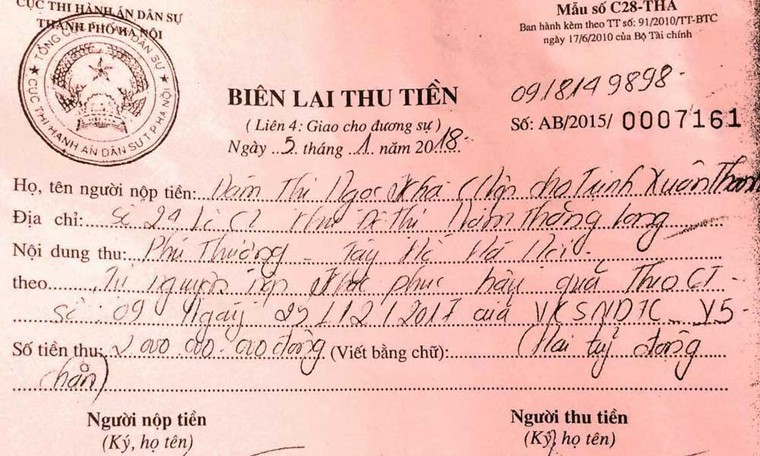 CỤC THI HÀNH ÁN DÂN SỰ
THÀNH PHỐ HÀ NỘI
TỔNG CỤC THI HÀNH ÁN DÂN SỰ
CỤC THI HÀNH ÁN DÂN SỰ T.P HÀ NỘI
Mẫu số C28-THA
Ban hành kèm theo TT số: 91/2010/TT-BTC
ngày 17/6/2010 của Bộ Tài chính
BIÊN LAI THU TIỀN
0918149898
(Liên 4: Giao cho đương sự)
Số: AB/2015/ 0007161
Ngày 5 tháng 1 năm 2018
Họ, tên người nộp tiền: Đàm Thị Ngọc Kha (Nộp cho Trịnh Xuân Thanh
Địa chỉ: Số 24 Lô C1 Khu Đô Thị Nam Thăng Long
Nội dung thu: Phú Thượng - Tây Hồ Hà Nội
theo Tự nguyện nộp khắc phục hậu quả Theo CT
Số: 09 Ngày 29/12/2017 của VKSNDTC V5
Số tiền thu: 2.000.000.000 đồng (Viết bằng chữ): (Hai tỷ đồng
chẵn)
Người nộp tiền Người thu tiền
(Ký, họ tên) (Ký, họ tên)